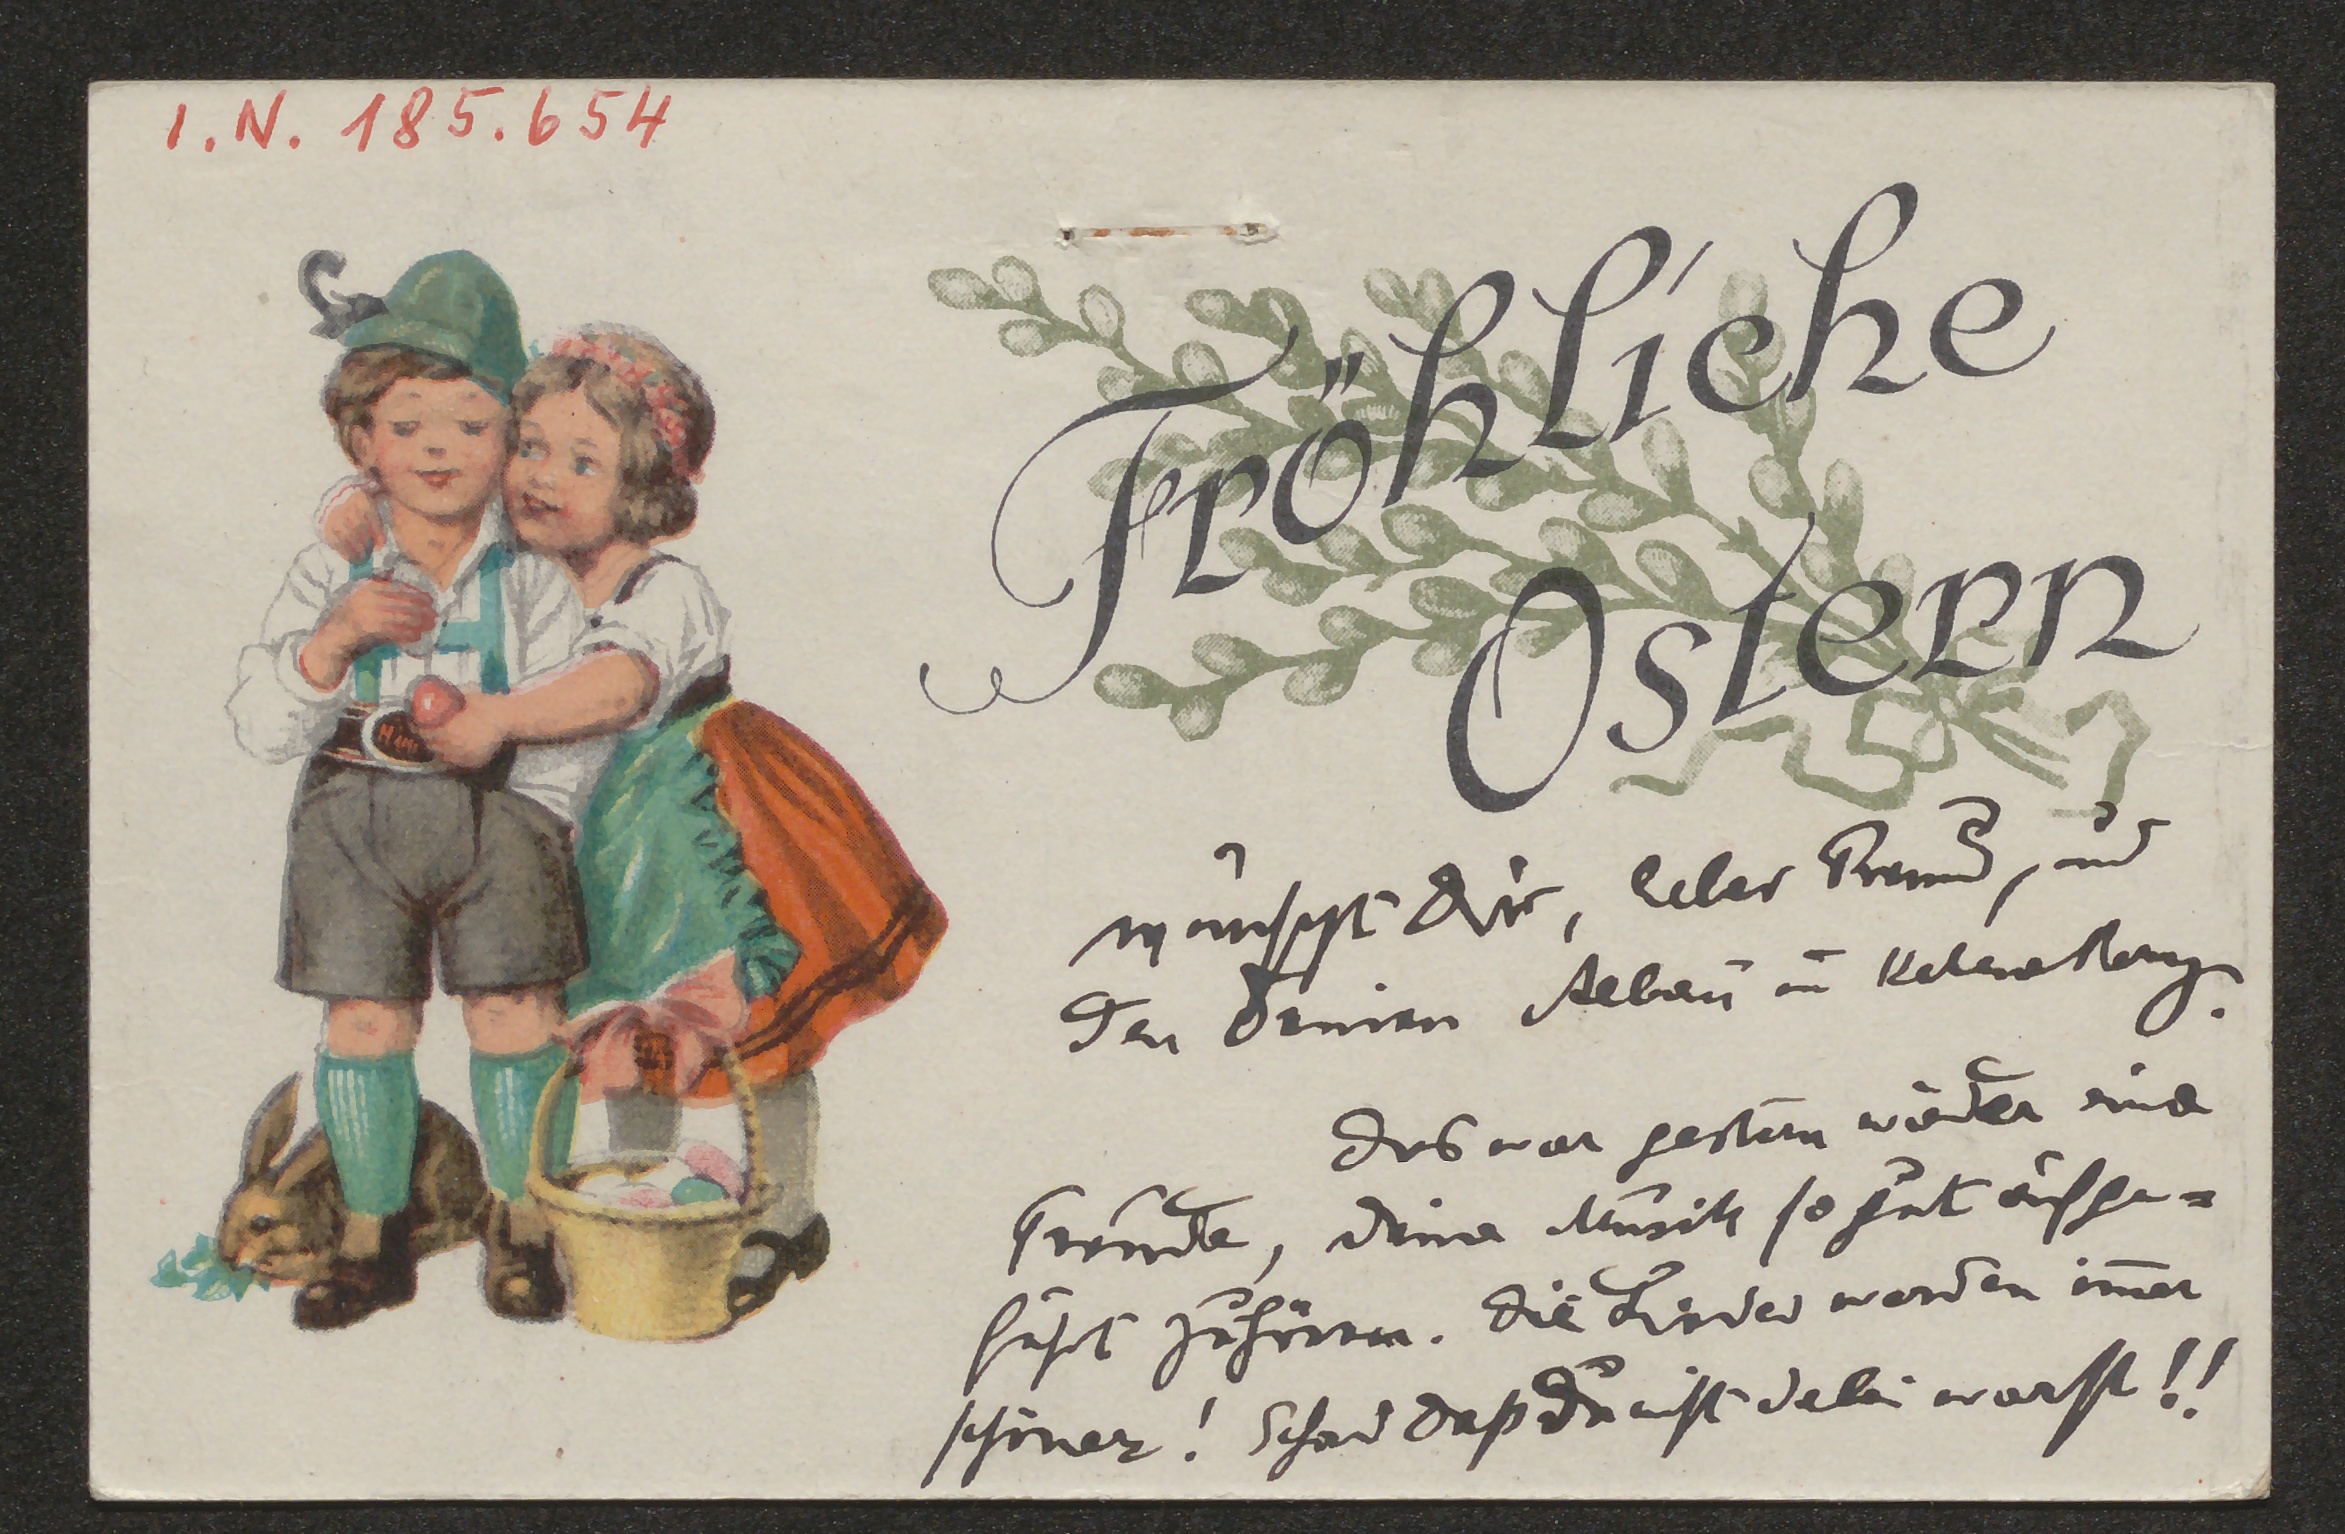 I.N. 185.654
Fröhliche
Ostern
wünscht Dir, lieber Freund, und
den Deinen
Das war gestern wieder eine
Freude, Deine Musik so gut aufge=
führt zuhören. Die Lieder werden im̅er
schöner! Schad daß Du nicht dabei warst!!